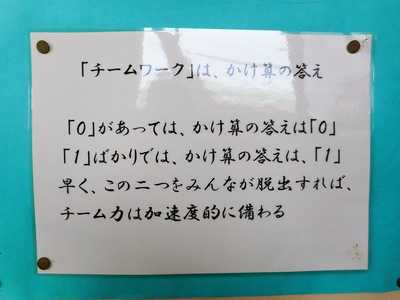 「チームワーク」は、かけ算の答え
「0」があっては、かけ算の答えは「0」
「1」ばかりでは、かけ算の答えは、「1」
早く、この二つをみんなが脱出すれば、
チーム力は加速度的に備わる